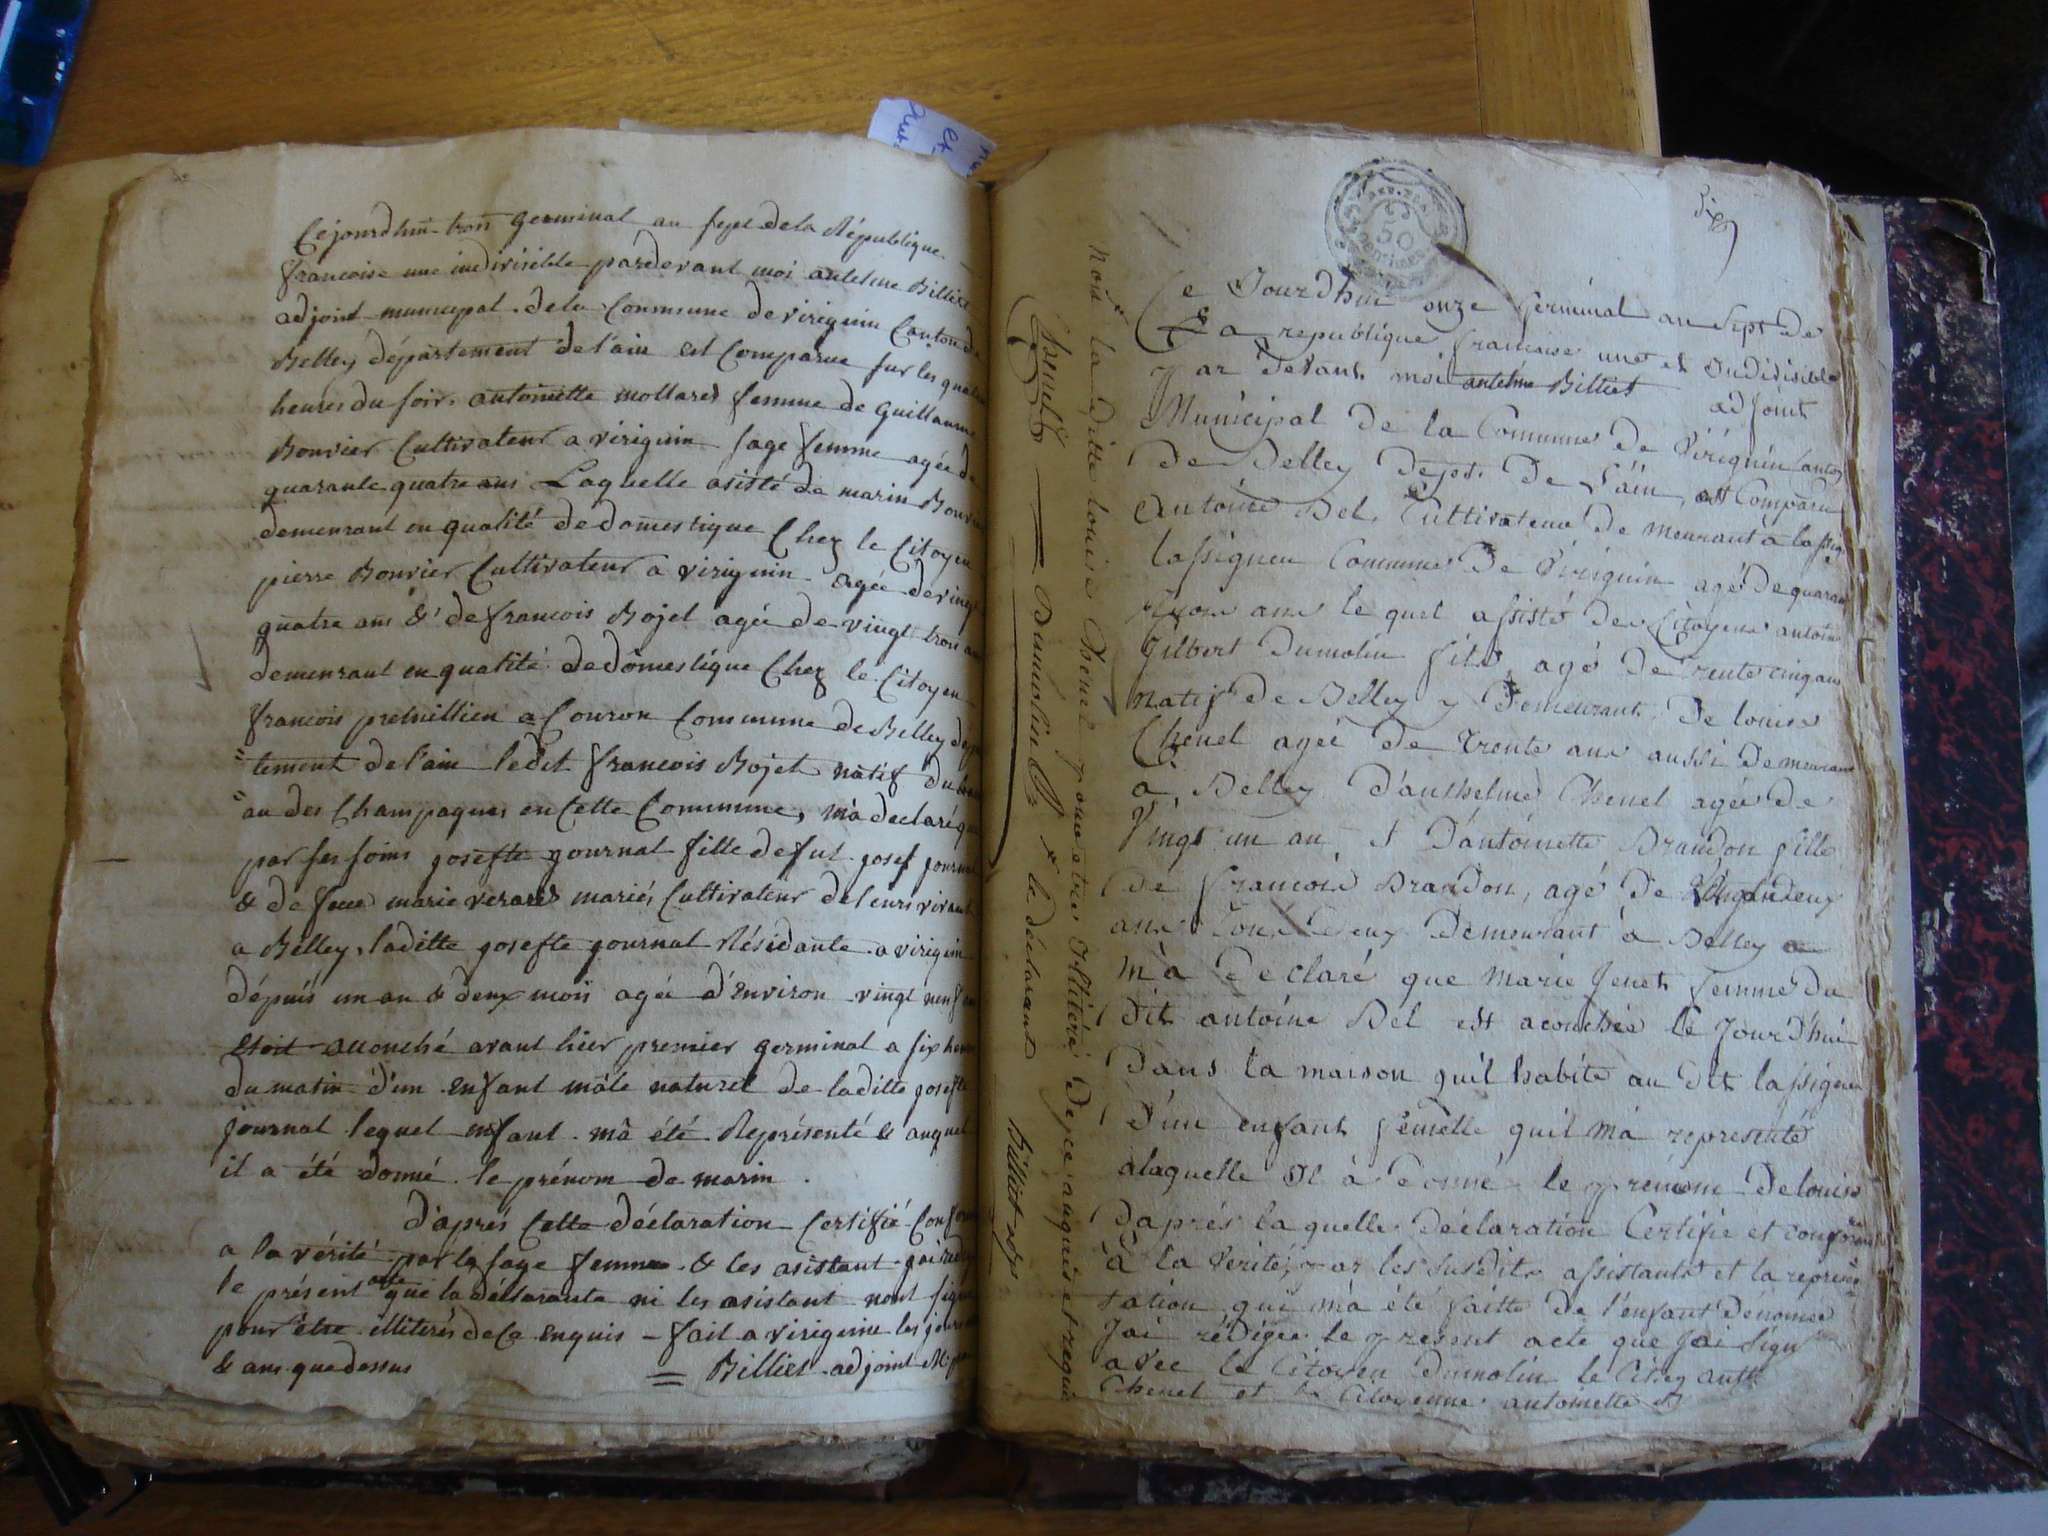 Cejourdhui trois germinal an sept de la République
francoise une indivisible pardevant moi antelme Billiet
adjoint municipal de la Commune de virignin Canton de
Belley département de l'ain est Comparue sur les quatre
heures du soir antoinette mollard femme de Guillaume
Bonvier Cultivateur a virignin sage femme agée de
quarante quatre ans Laquelle asisté de marin Bonvier
demeurant en qualité de domestique Chez le Citoyen
pierre Bonvier Cultivateur a virignin agée de vingt
quatre ans & de francois Rojet agée de vingt trois ans
demeurant en qualité de domestique Chez le Citoyen
francois preluillien a Couron Commune de Belley depar
=tement de l'ain ledit francois Rojet natif du
=au des Champagnes en Cette Commune, m'a declaré que
par ses soins josefte journal fille de fut josef journal
& de feue marie verard mariés Cultivateur de leurs vivant
a Belley, laditte josefte journal Résidante a virignin
dépuis un an & deux mois agée d'environ vingt neuf ans
étoit accouché avant hier premier germinal a six heures
du matin d'un enfant mâle naturel de laditte josefte
journal lequel enfant m'a été Représenté & auquel
il a été donné le prénom de marin
d'aprés Cette déclaration Certifié Conforme
a la vérité par la sage femme & les asistant jai redigé
le présent acte que la déclarante ni les asistant nont signé
pour être illiterés de ce enquis – fait a virignin les jours
& ans que dessus = Billiet adjoint
Six
REP. FRA
50
Ce Jourdhui onze Germinal an Sept de
La republique francaise une et Indivisible
Par devant moi antelme Billiet adjoint
Municipal de la Commune de Virignin Canton
de Belley depot. de l'ain, est Comparu
Antoine Bel Cultivateur de meurant à
lassigneu Commune de Virignin agé de quarante
ans le quel assisté des Citoyens antoine
Gilbert Dumolin fils agé de trente cinq ans
natif de Belley y Demeurant, De louise
Chenel agée de trente ans aussi Demeurant
à Belley D'anthelme Chenel agée de
Vingt un an et D'antoinette Brandon fille
de francois Brandon, agé de vingt deux
ans Tous Deux Demeurant à Belley
m'a Declaré que marie Jenet femme du
Dit antoine Bel est acouchée le Jourdhui
Dans la maison quil habite au dit lassigneu
D'un enfant femelle quil m'a representé
alaquelle Il à Donné le prénom De louise
Daprés la quelle déclaration Certifie et conforme
à la Verité, par les susdits assistants et la représen
tation qui m'a été faitte de l'enfant Dénomée
Jai rédigée le present acte que Jai Signé
avec le Citoyen Dumolin le Citoyen anth
Chenel et la Citoyenne antoinette B
non la ditte louise Chenel pour etre Illiteré De ce anquis et requis
Chenel Dumolin fils le déclarant Billiet adj